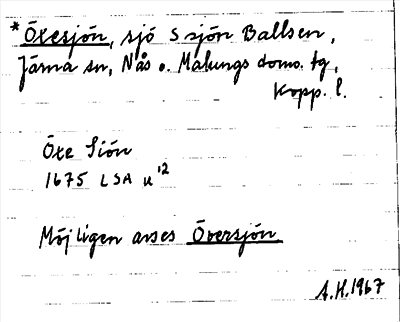 * Öxesjön, sjö S sjön Ballsen,
Järna sn, Nås o. Malungs doms. tg,
Kopp. l.
Öxe Siön
1675 LSA U¹²
Möjligen avses Översjön
A.H. 1967